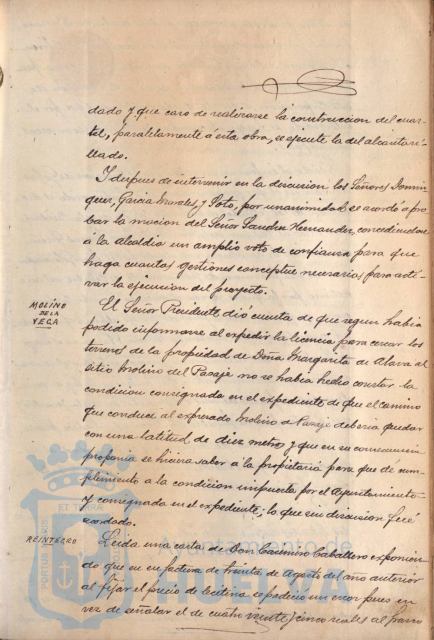 dado y que caso de realizarse la construccion del cuar-
tel, paralelamente á esta obra, se ejecute la del alcantari-
llado.
Y despues de intervenir en la discusion los Señores Domin-
guez, Garcia Morales y Soto, por unanimidad se acordó apro-
bar la mocion del Señor Sanchez Hernandez, concediendose
á la Alcaldia un amplio voto de confianza para que
haga cuantas gestiones conceptue necesarias para acti-
var la ejecucion del proyecto.
MOLINO
DE LA
VEGA
El Señor Presidente dió cuenta de que segun habia
podido informarse al expedir la licencia para cercar los
terrenos de la propiedad de Doña Margarita de Alava al
sitio Molino del Pasaje no se habia hecho constar la
condicion consignada en el expediente de que el camino
que conduce al expresado Molino de Pasaje deberia quedar
con una latitud de diez metros y que en su consecuencia
proponia se hiciera saber á la propietaria para que dé cum-
plimiento á la condicion impuesta por el Ayuntamiento
y consignada en el expediente; lo que sin discusion fué
acordado.
REINTEGRO
Leida una carta de Don Casimiro Caballero exponien-
do que en su factura de treinta de Agosto del año anterior
al fijar el precio de se padeció un error pues en
vez de señalar el de cuatro veinte y cinco reales el frasco
PORTUS MARIS
ET TERRÆ
Ayuntamiento de
HUELVA